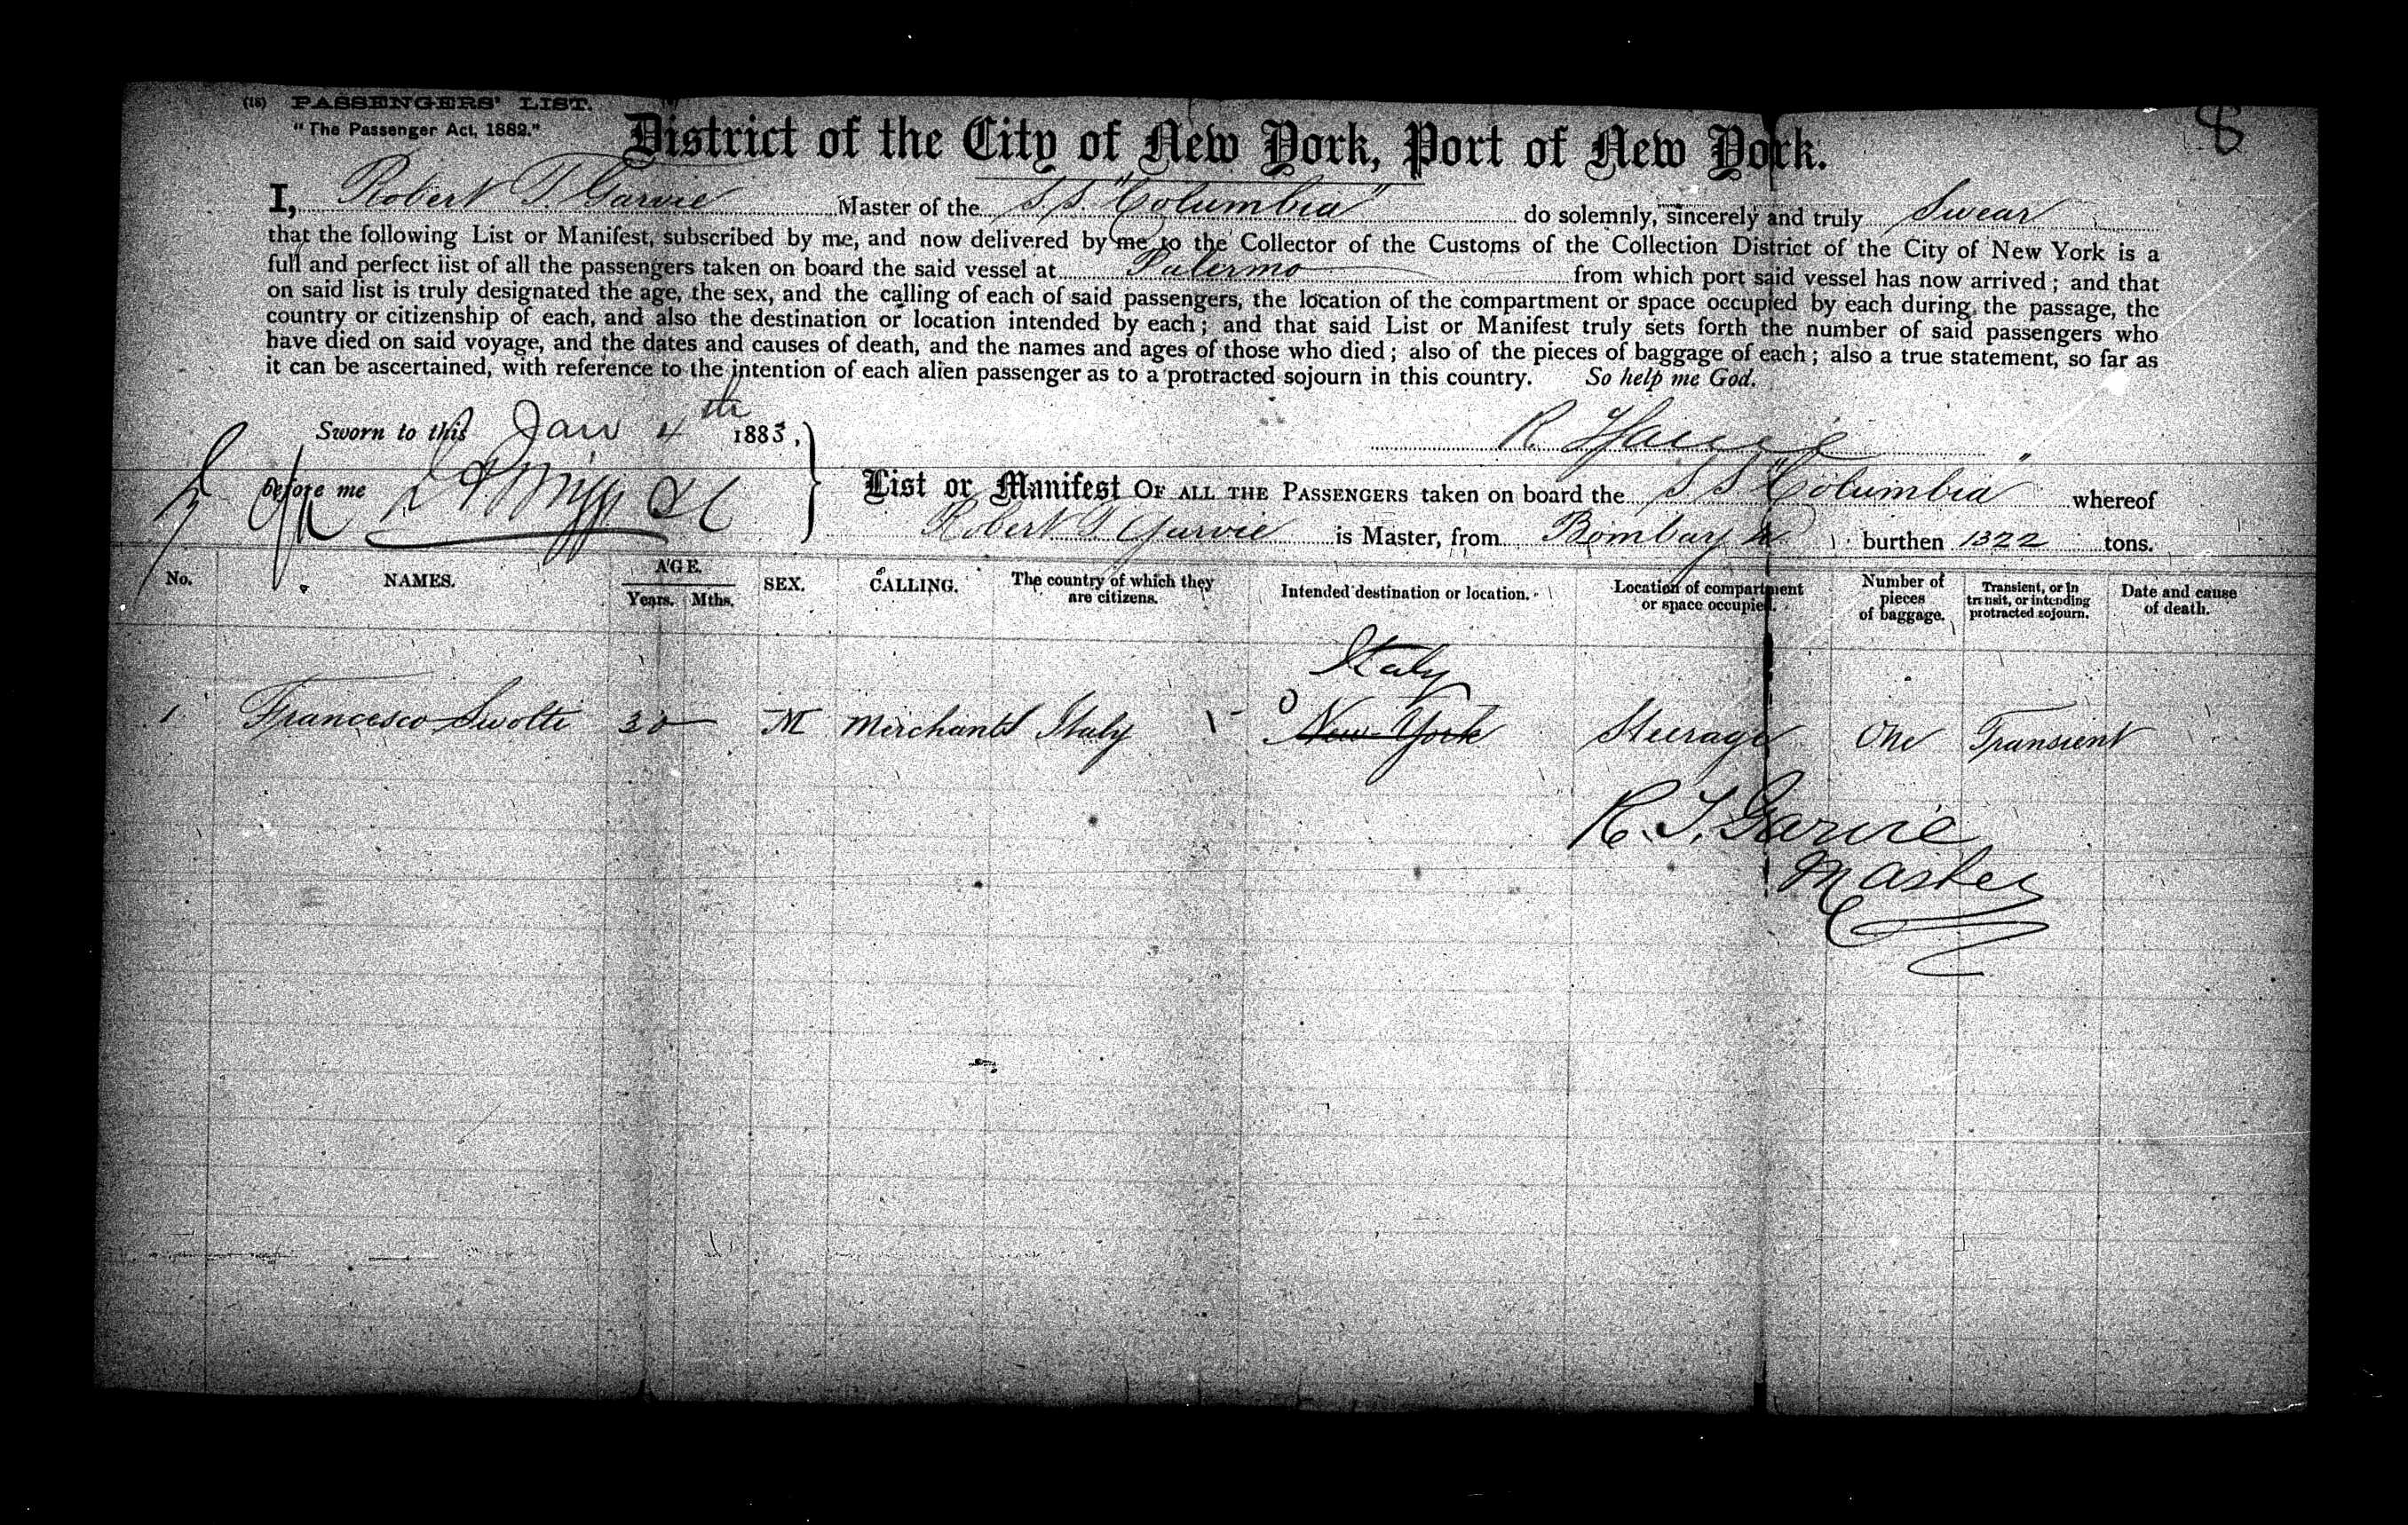 (18) PASSENGERS' LIST.
"The Passenger Act, 1882."
8
District of the City of New York, Port of New York.
I, Robert T. Garvie Master of the S.S. "Columbia" do solemnly, sincerely and truly Swear
that the following List or Manifest, subscribed by me, and now delivered by me to the Collector of the Customs of the Collection District of the City of New York is a
full and perfect list of all the passengers taken on board the said vessel at Palermo from which port said vessel has now arrived; and that
on said list is truly designated the age, the sex, and the calling of each of said passengers, the location of the compartment or space occupied by each during the passage, the
country or citizenship of each, and also the destination or location intended by each; and that said List or Manifest truly sets forth the number of said passengers who
have died on said voyage, and the dates and causes of death, and the names and ages of those who died; also of the pieces of baggage of each; also a true statement, so far as
it can be ascertained, with reference to the intention of each alien passenger as to a protracted sojourn in this country. So help me God.
Sworn to this Jan 4th 1883,
R T Garvie
before me
List or Manifest OF ALL THE PASSENGERS taken on board the S S "Columbia" whereof
Robert T Garvie is Master, from Bombay burthen 1322 tons.
No. NAMES. AGE. Years. Mths. SEX. CALLING. The country of which they are citizens. Intended destination or location. Location of compartment or space occupied. Number of pieces of baggage. Transient, or in transit, or intending protracted sojourn. Date and cause of death.
Italy
1 Francesco 30 M Merchant Italy New York Steerage One Transient
R. T. Garvie
Master